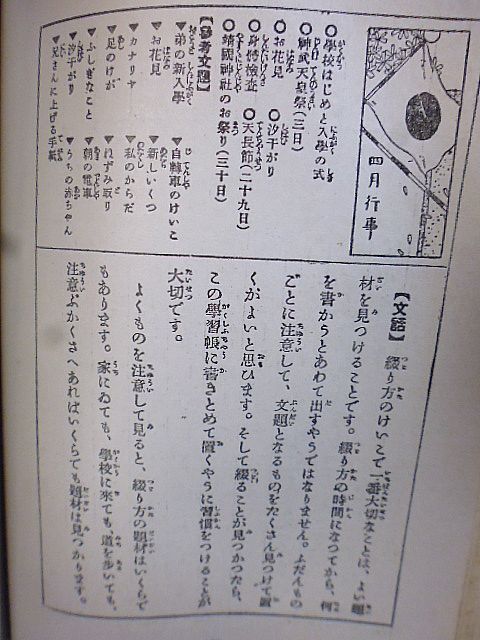 四月行事
○學校はじめと入學の式
○神武天皇祭(三日)
○お花見 ○汐干がり
○身體檢査 ○天長節(二十九日)
○靖國神社のお祭り(三十日)
【參考文題】
▼弟の新入學 ▼自轉車のけいこ
▼お花見 ▼新しいくつ
▼カナリヤ ▼私のからだ
▼足のけが ▼ねずみ取り
▼ふしぎなこと ▼朝の電車
▼汐干がり ▼うちの赤ちゃん
▼兵さんに上げる手紙
【文話】 綴り方のけいこで一番大切なことは、よい題
材を見つけることです。綴り方の時間になつてから、何
を書かうとあわて出すやうではなりません。ふだんもの
ごとに注意して、文題となるものをたくさん見つけて置
くがよいと思ひます。そして綴ることが見つかつたら、
この學習帳に書きとめて置くやうに習慣をつけることが
大切です。
よくものを注意して見ると、綴り方の題材はいくらで
もあります。家にゐても、學校に來ても、道を歩いても、
注意ぶかくさへあればいくらでも題材は見つかります。